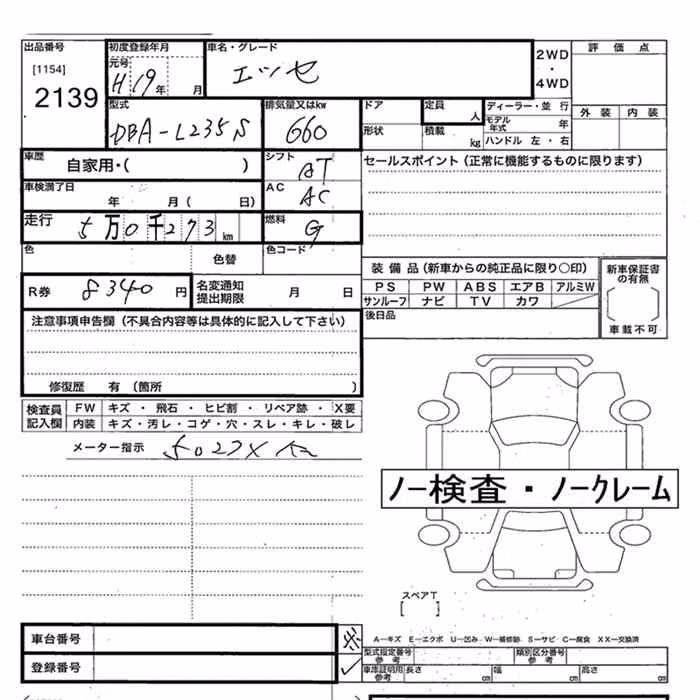 出品番号 初度登録年月 車名・グレード 2WD ・ 4WD 評価点
[1154] 元号
2139 H19年 月 エッセ
型式 排気量又はkw ドア 定員 人 ディーラー・並 行 外 装 内 装
DBA-L235S 660 形状 積載 kg モデル年式 年
ハンドル 左・右
車歴 自家用・( ) シフト AT セールスポイント(正常に機能するものに限ります)
車検満了日 年 月( 日) AC AC
走行 5万0千273km 燃料 G
色 色替 色コード
装 備 品(新車からの純正品に限り○印) 新車保証書の有無
R券 8340円 名変通知提出期限 月 日 PS PW ABS エアB アルミW
サンルーフ ナビ TV カワ
車載不可
注意事項申告欄(不具合内容等は具体的に記入して下さい) 後日品
修復歴 有(箇所 )
検査員記入欄 FW キズ ・ 飛石 ・ ヒビ割 ・ リペア跡 ・ X要
内装 キズ・汚レ・コゲ・穴・スレ・キレ・破レ
メーター指示
ノー検査・ノークレーム
スペアT
[ ]
車台番号 A−キズ E−エクボ U−凹み W−補修跡 S−サビ C−腐食 XX−交換済
型式指定番号 参考 類別区分番号 参考
登録番号 車庫証明用 参考 長さ cm 幅 cm 高さ cm